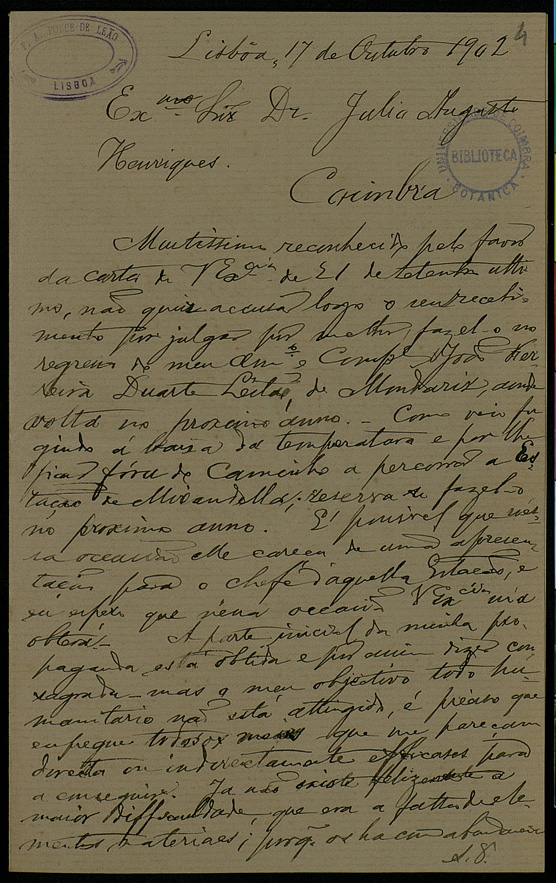 F. A. PONCE DE LEÃO
LISBOA
4
Lisbôa, 17 de Outubro 1902
Exmo Snr. Dr. Julio Augusto
Henriques.
UNIVERSIDADE DE COIMBRA
BIBLIOTECA
BOTANICA
Coimbra
Muitissimo reconhecido pelo favor
da carta de VExcia de 21 de Setembro ulti-
mo, não quiz accusar logo o seu recebi-
mento por julgar por melhor, fazel-o no
regresso do meu Amo e Compe João Fer-
reira Duarte Leitão, de Mondariz, aonde
volta no proximo anno. – Como veiu fu-
gindo á baixa da temperatura e por lhe
ficar fóra do caminho a percorrer a Es-
tação de Mirandella, reserva-se fazel-o
no proximo anno. É possivel que nes-
sa occasião elle careça de uma apresen-
tação para o chefe d'aquella Estação, e
eu espero que n'essa occasião VExcia m'a
obterá. – A parte inicial da minha pro-
paganda está obtida e por assim dizer con-
sagrada – mas o meu objectivo todo hu-
manitario não está attingido, é preciso que
empregue todos os meios que me pareçam
directa ou indirectamente efficazes para
o conseguir. Já não existe felizmente a
maior difficuldade, que era a falta de ele-
mentos materiaes; porq. os ha com abundancia